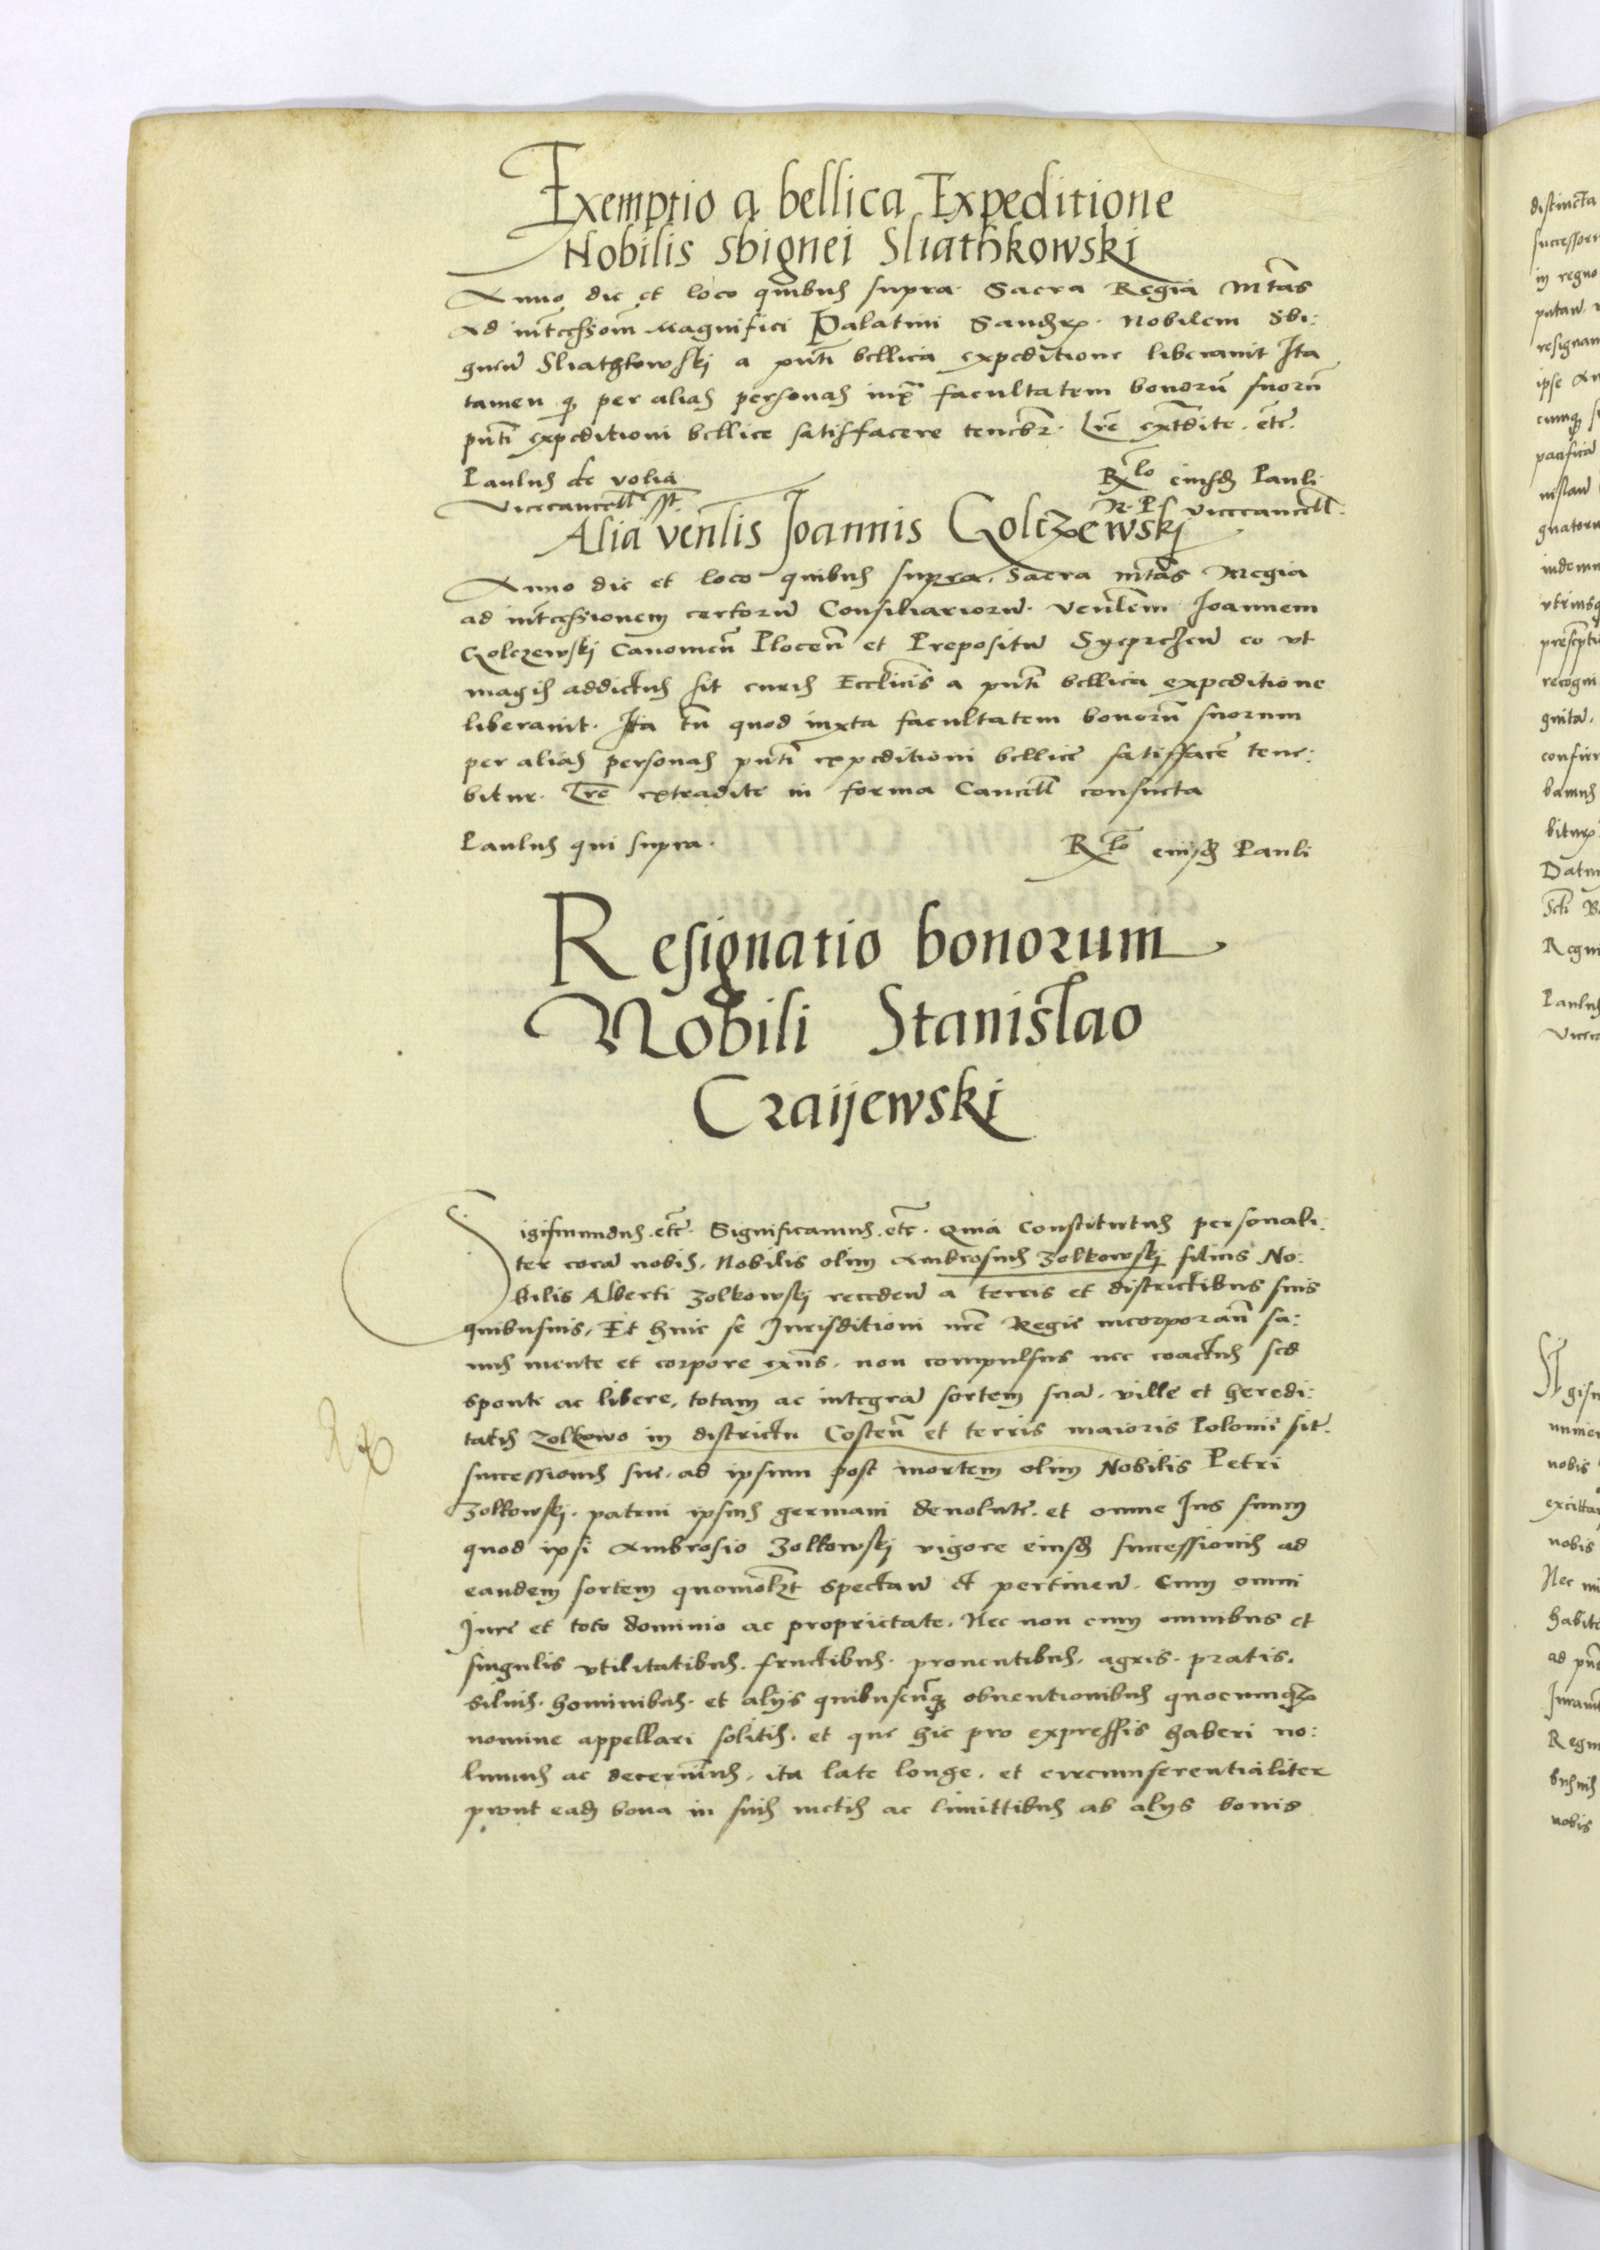 Exemptio a bellica Expeditione
Nobilis Sbignei Sliathkowski
Anno die et loco quibus supra. Sacra Regia Mtas
Ad intcessiom Magnifici Palatini Nobilem Sbi:
gneu Sliathkowskj a pnti bellica expeditione liberauit Ita
tamen q per alias personas iux facultatem bonoru suoru
pnti expeditioni bellice satisfacere tenebr. Lre extdite. etc.
Paulus de volia
Vicecancell sst
Rlo eiusd Pauli
R. P. vicecancell.
Alia venlis Joannis Golczewskj
Anno die et loco quibus supra. Sacra mtas Regia
ad intcessionem certoru Consiliarioru. Venlem Joannem
Golczewskj Canonicu Plocen et Prepositu eo vt
magis addictus sit curis Ecclicis a pnti bellica expeditione
liberauit. Ita tn quod iuxta facultatem bonoru suorum
per alias personas pnti expeditioni bellice satisface tene:
bitur. Lre extradite in forma Cancell consueta
Paulus qui supra.
Rlo eiusd Pauli
Resignatio bonorum
Nobili Stanislao
Craijewski
Sigismundus. etc. Significamus. etc. Quia Constitutus personali:
ter cora nobis. Nobilis olim Ambrosius Zolkowskj filius No:
bilis Alberti Zolkowskj receden a terris et districtibus suis
quibusuis. Et huic se Jurisditioni nre Regie incorporan sa:
nus mente et corpore exns. non compulsus nec coactus sed
sponte ac libere, totam ac integra sortem sua. ville et heredi:
tatis Zolkowo in districtu Costen et terris maioris Polonie sit.
successionis sue. ad ipsum post mortem olim Nobilis Petri
Zolkowskj. patrui ipsius germani deuolute. et omne Jus suum
quod ipsi Ambrosio Zolkowskj vigore eiusd successionis ad
eandem sortem quomolzt spectan et pertinen. Cum omni
Jure et toto dominio ac proprietate. Nec non cum omnibus et
singulis vtilitatibus. fructibus. prouentibus. agris. pratis.
siluis. hominibus. et alijs quibuscuq obuentionibus quocumq
nomine appellari solitis. et que hic pro expressis haberi vo:
lumus ac decernimus. ita late longe. et circumferentialiter
prout ead bona in suis metis ac limittibus ab alijs bonis